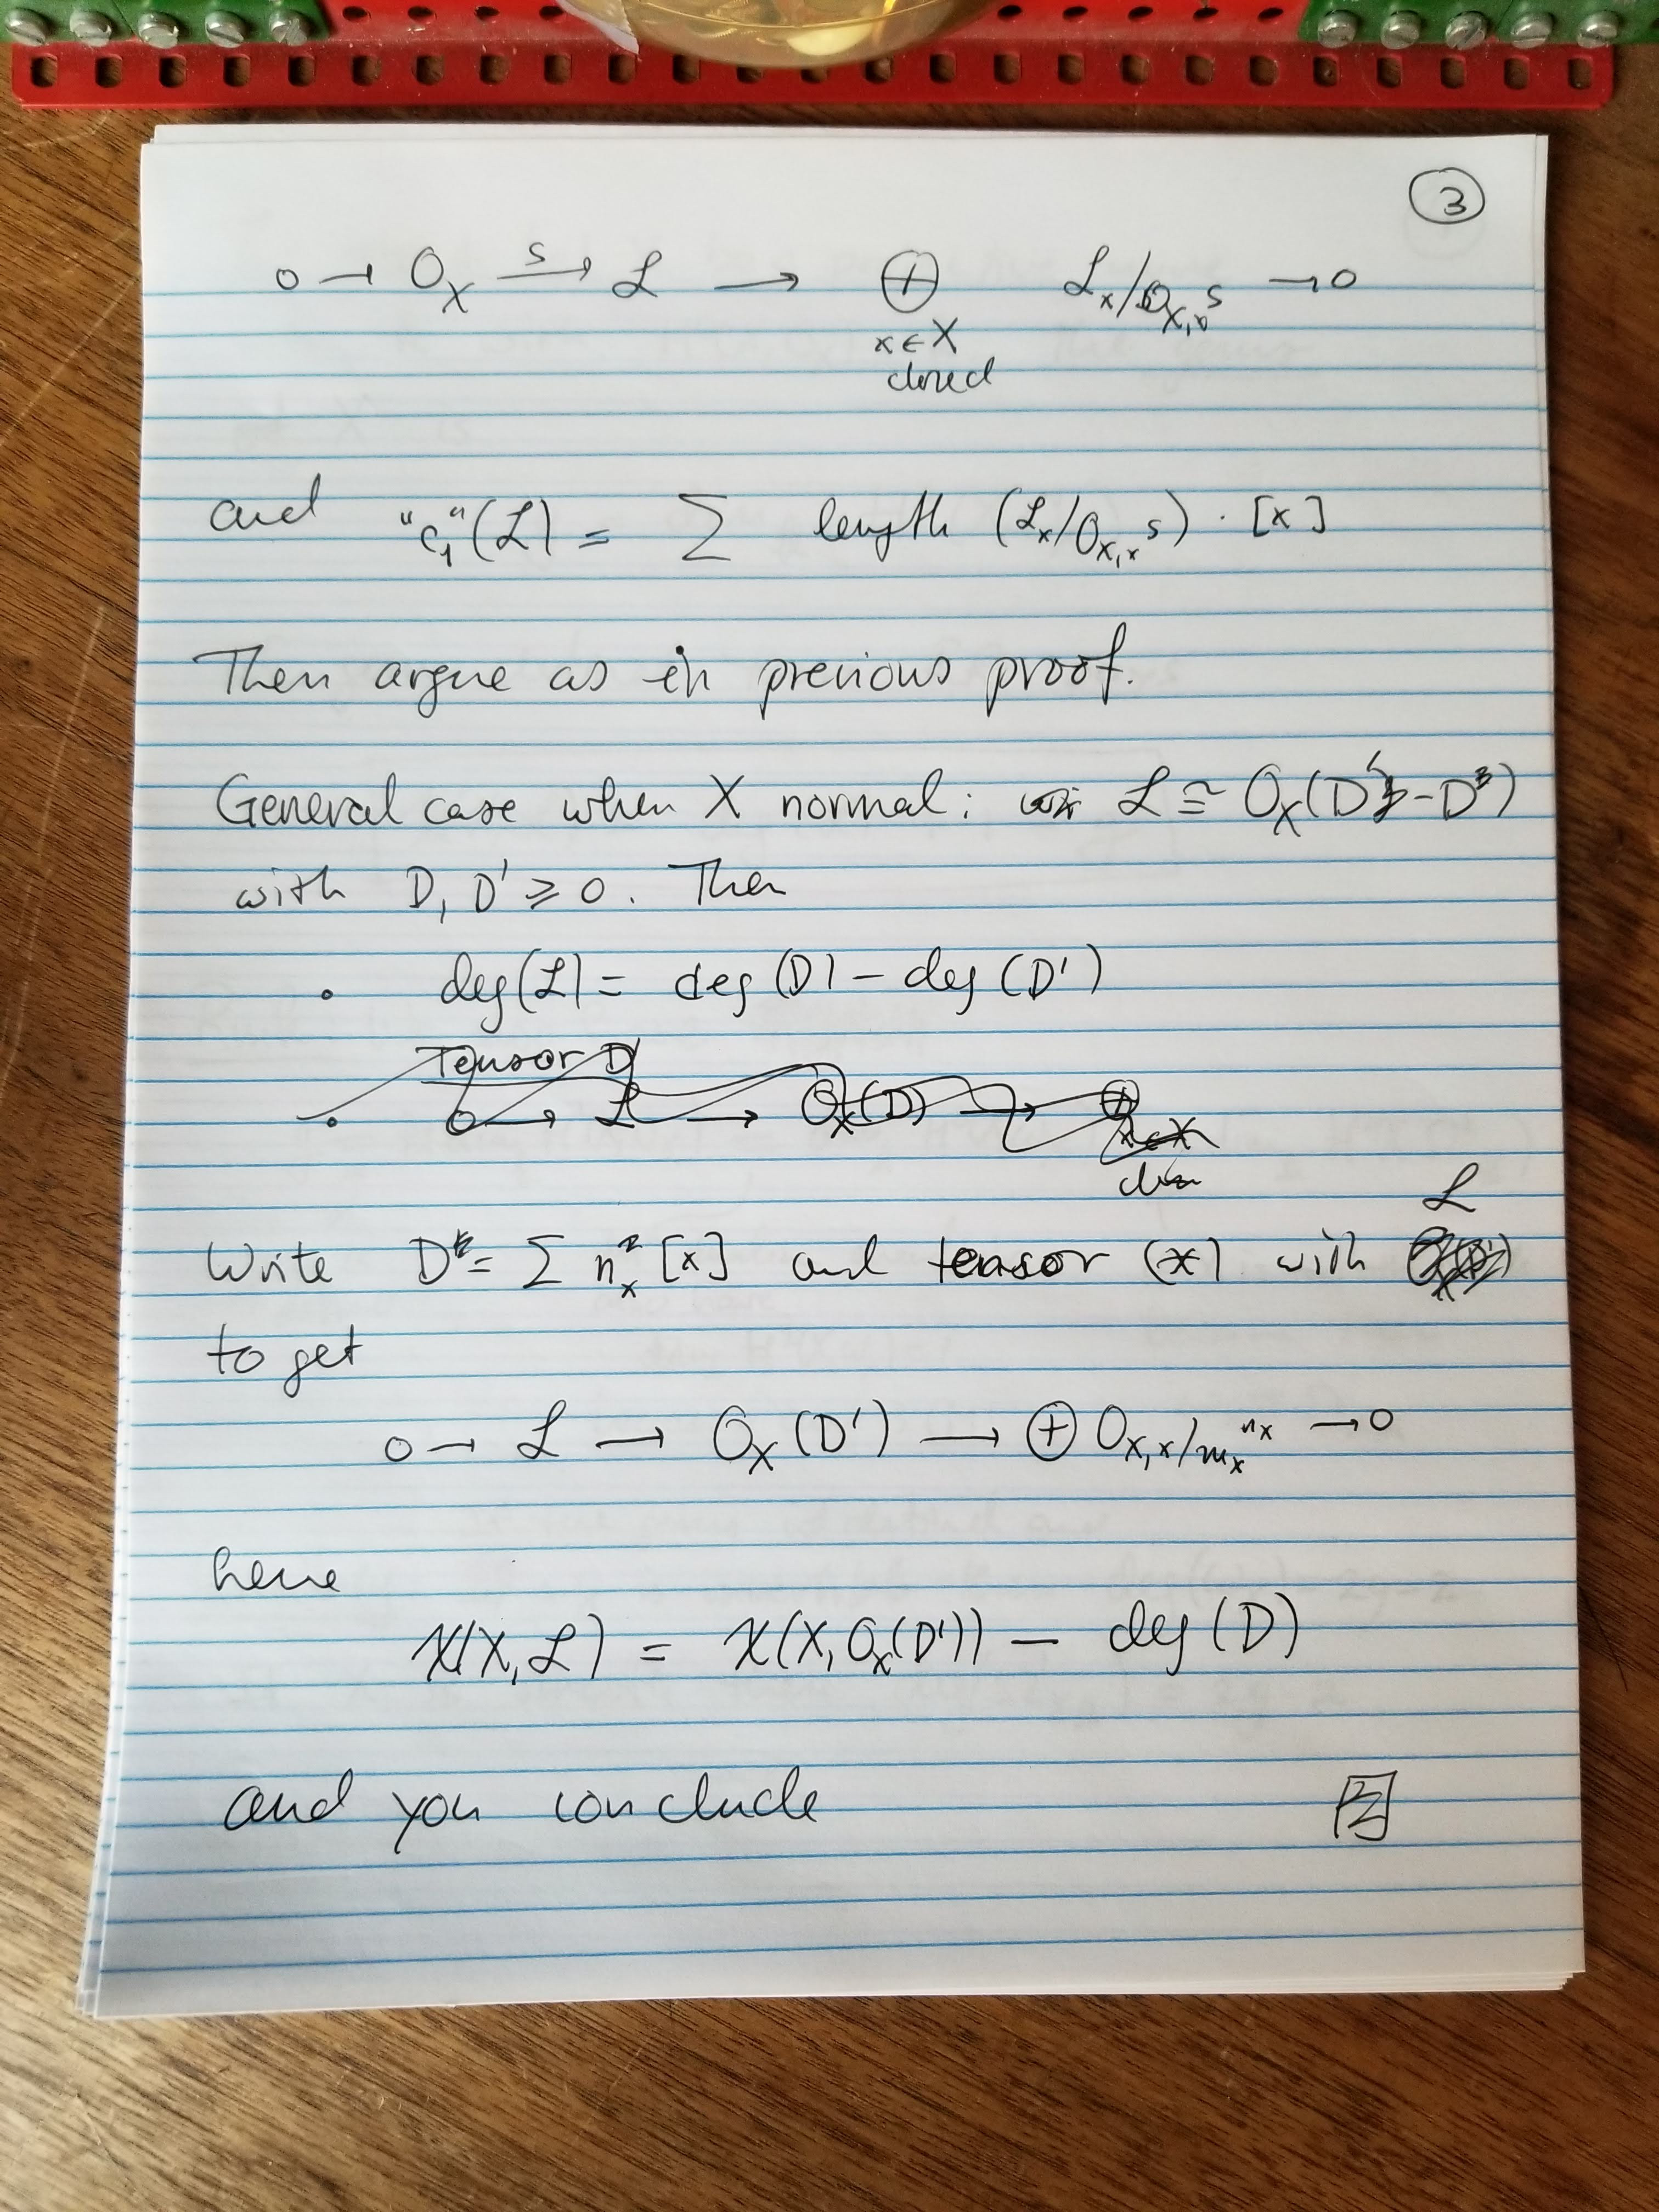 3
0 → O_X →^s L → ⊕_{x∈X closed} L_x/O_{X,x} s → 0
and "c_1"(L) = Σ length (L_x/O_{X,x} s) · [x]
Then argue as in previous proof.
General case when X normal: L ≅ O_X(D' - D)
with D, D' ≥ 0. Then
• deg(L) = deg(D) - deg(D')
Tensor D
• 0 → L → O_X(D) → ⊕_{x∈X}
L
Write D = Σ n_x [x] and tensor (*) with
to get
0 → L → O_X(D') → ⊕ O_{X,x}/m_x^{n_x} → 0
hene
χ(X, L) = χ(X, O_X(D')) - deg(D)
and you conclude